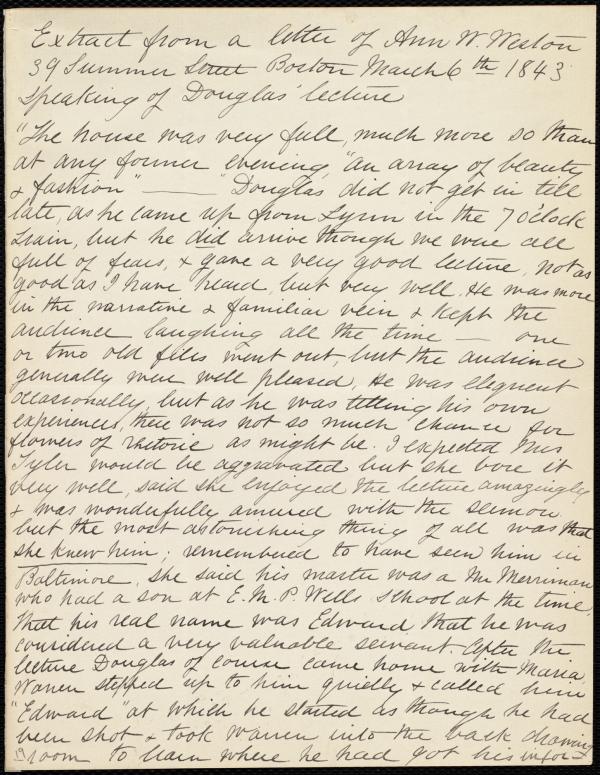 Extract from a letter of Ann W. Weston
39 Summer Street Boston March 6th 1843
speaking of Douglas' lecture
"The house was very full, much more so than
at any former evening, "an array of beauty
& fashion" — "Douglas did not get in till
late, as he came up from Lynn in the 7 o'clock
train, but he did arrive though we were all
full of fears, & gave a very good lecture, not as
good as I have heard, but very well. He was more
in the narrative & familiar vein & kept the
audience laughing all the time — one
or two old files went out, but the audience
generally were well pleased. He was eloquent
occasionally, but as he was telling his own
experiences, there was not so much chance for
flowers of rhetoric as might be. I expected Mrs
Tyler would be aggravated but she bore it
very well, said she enjoyed the lecture amazingly
& was wonderfully amused with the sermon
but the most astonishing thing of all was that
she knew him; remembered to have seen him in
Baltimore, she said his master was a Mr Merriman
who had a son at E. M. P. Wells school at the time,
that his real name was Edward that he was
considered a very valuable servant. After the
lecture Douglas of course came home with Maria.
Warren stepped up to him quietly & called him
"Edward" at which he started as though he had
been shot & took Warren into the back drawing
room to learn where he had got his infor-